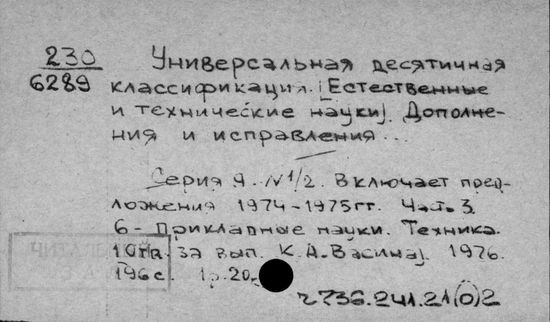 230
6289
Универсальная десятичная
классификация. [Естественные
и технические науки]. Дополне-
ния и исправления...
Серия 9. N 1/2. Включает пред-
ложения 1974-1975гг. Часть 3.
6 - Прикладные науки. Техника.
за вып. К.А. Васина]. 1976.
196с. 1р.20к
ч736.241.21(0)2